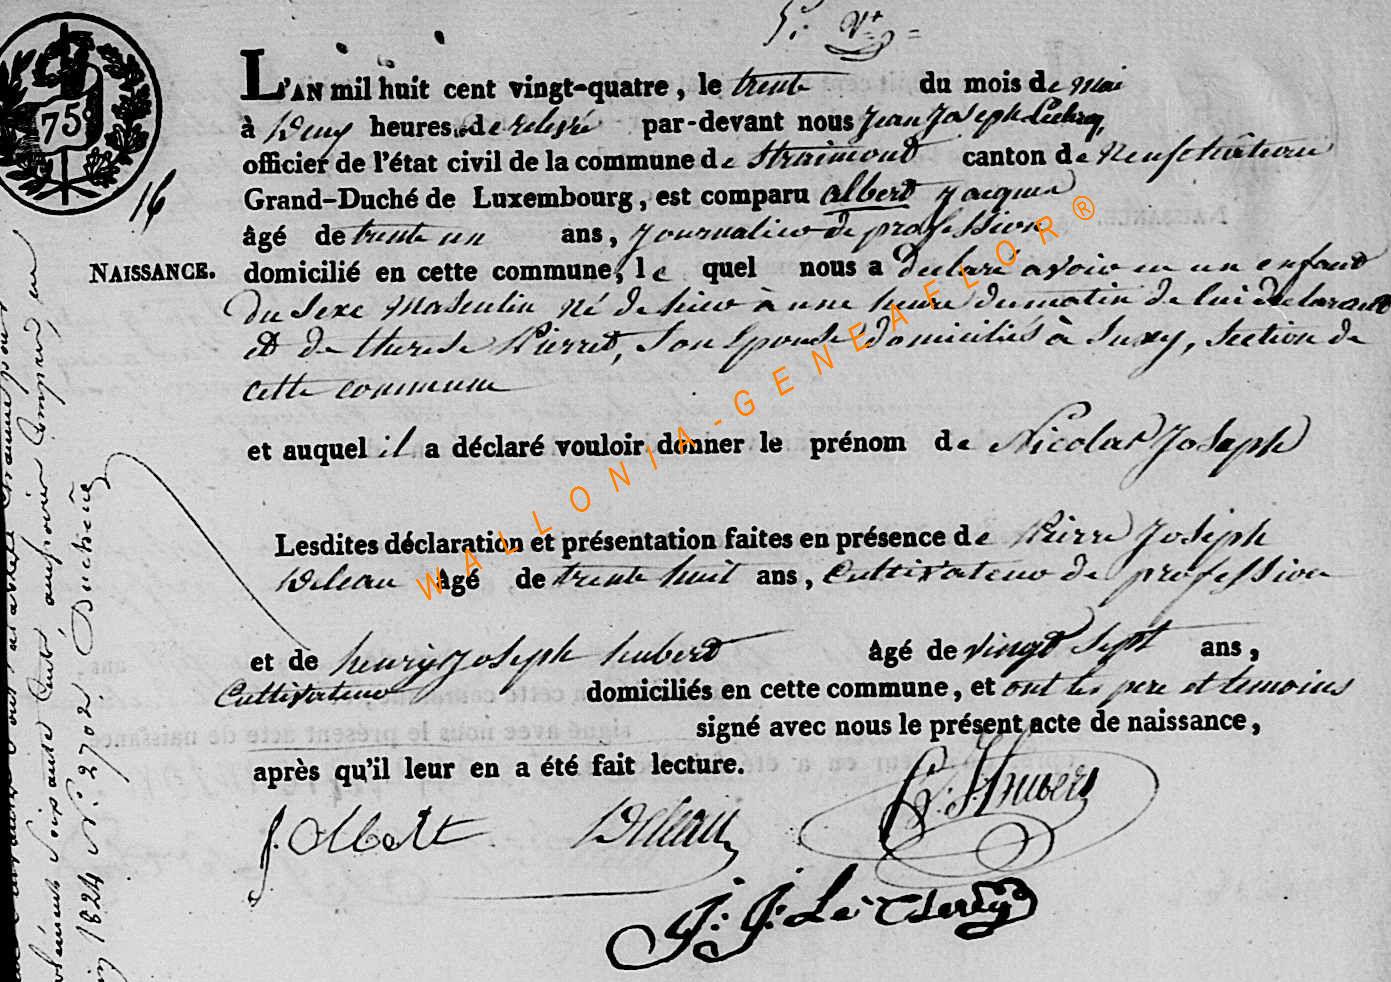 5. Vt
75
16
L'AN mil huit cent vingt-quatre, le trente du mois de mai
à deux heures de relevé par-devant nous Jean Joseph Leclercq,
officier de l'état civil de la commune de Straimont canton de Neufchateau
Grand-Duché de Luxembourg, est comparu albert Jacques
âgé de trente un ans, journalier de profession
NAISSANCE.
domicilié en cette commune, le quel nous a declaré avoir eu un enfant
du sexe masculin né de hier à une heure du matin de lui declarant
et de therese Pierret, son Epouse domiciliés à Suxy, section de
cette commune
et auquel il a déclaré vouloir donner le prénom de Nicolas Joseph
Lesdites déclaration et présentation faites en présence de Pierre Joseph
âgé de trente huit ans, Cultivateur de profession
et de henry Joseph hubert âgé de vingt sept ans,
Cultivateur domiciliés en cette commune, et ont les pere et temoins
signé avec nous le présent acte de naissance,
après qu'il leur en a été fait lecture.
J. Albert
Hubert
J: J: Le Clercq
soixante cent
1824 N: 2702.
WALLONIA-GENEAFLOR®